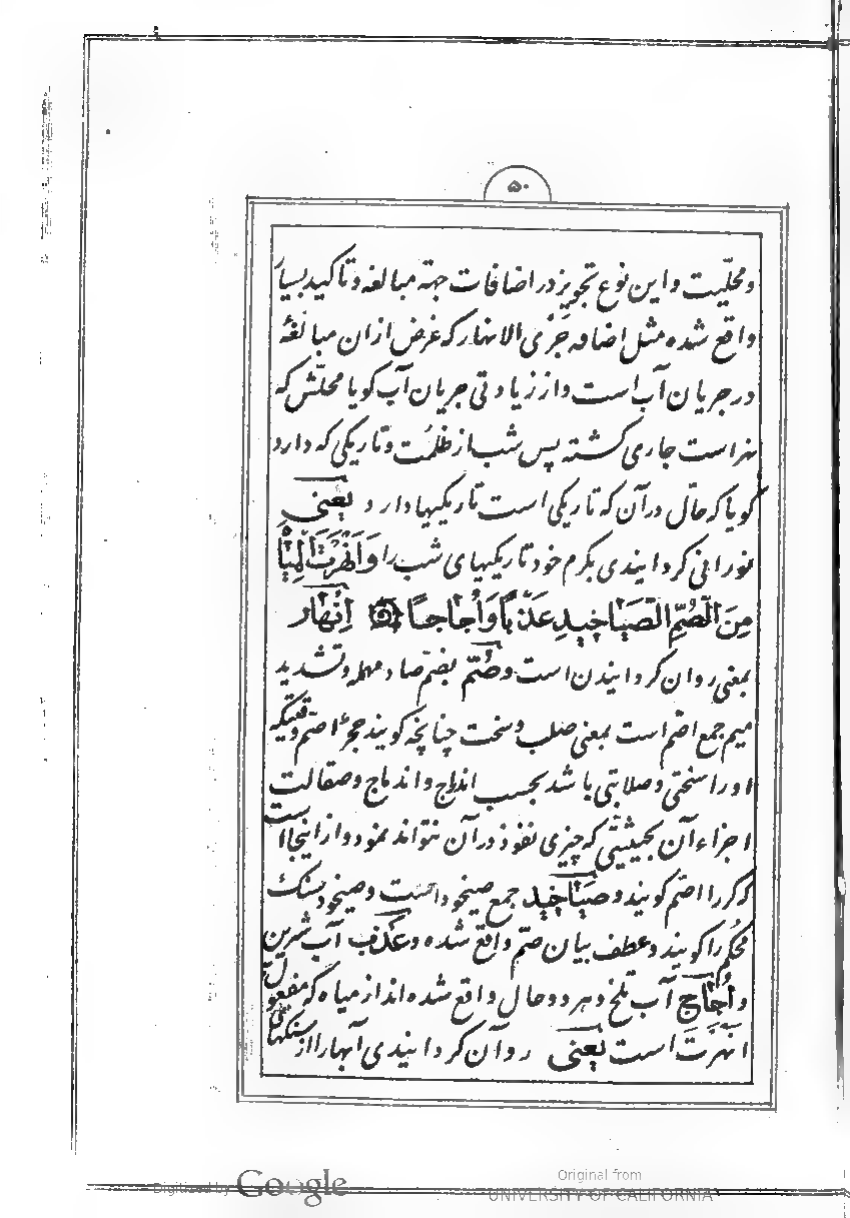 ۵۰
ومحلیت واین نوع تجویز در اضافات جهة مبالغه وتاکید بسیار
واقع شده مثل اضافه جَرْی الانهار که غرض ازان مبالغهٔ
در جریان آب است واز زیادتی جریان آب کویا محلّش که
نهر است جاری کشته پس شب از ظلمت وتاریکی که دارد
کویا که حال در آن که تاریکی است تاریکیها دارد یَعْنی
نورانی کردانیدی بکرم خود تاریکیهای شب را وَاَنْهَرْتَ الْمِیٰاهَ
مِنَ الصُّمِّ الصَّیٰاخیدِ عَذْباً وَاُجٰاجاً اِنْهار
بمعنی روان کردانیدن است وصُمّ بضم صاد مهمله وتشدید
میم جمع اصم است بمعنی صلب وسخت چنانچه کویند حجرٌ اصم وقتیکه
اورا سختی وصلابتی باشد بحسب اندماج وصقالت
اجزاء آن بحیثیتی که چیزی نفوذ در آن نتواند نمود واز اینجا است
که کر را اصم کویند وصَیٰاخید جمع صیخود است وصیخود سنک
محکم را کویند وعطف بیان صم واقع شده وعَذْب آب شرین
واُجٰاج آب تلخ وهر دو حال واقع شده اند از میاه که مفعول
انهَرْتَ است یَعْنی روان کردانیدی آبهارا از سنکهای
Digitized by Google
Original from
UNIVERSITY OF CALIFORNIA